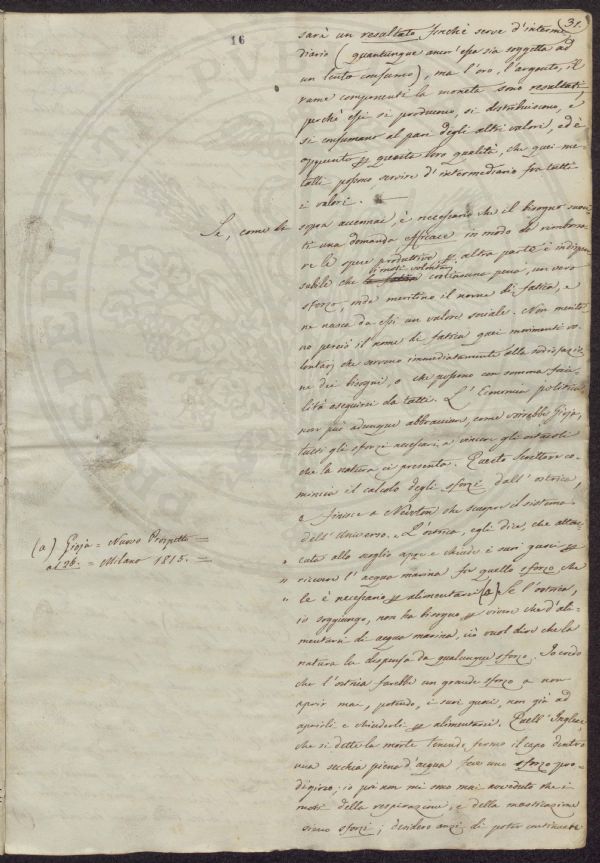 31.
16
sarà un resultato finchè serve d'interme-
diario (quantunque ancor'essa sia soggetta ad
un lento consumo), ma l'oro, l'argento, il
rame componenti la moneta sono resultati
perchè essi si producono, si distribuiscono, e
si consumano al pari degli altri valori, ed è
appunto per questa loro qualità, che quei me-
talli possono servire d'intermediario fra tutti
i valori. —
Se, come di sopra accennai, è necessario che il bisogno susci-
ti una domanda efficace in modo di rimborsa-
re le spese produttive, per altra parte è indispen-
sabile che la fatica i moti volontarj costituiscano pena, un vero
sforzo, onde meritino il nome di fatica, e
ne nasca da essi un valore sociale. Non merita-
no perciò il nome di fatica quei movimenti vo-
lontarj che servono immediatamente alla sodisfazio-
ne dei bisogni, o che possono con somma faci-
lità eseguirsi da tutti. L'Economia politica
non può adunque abbracciare, come vorrebbe Gioja,
tutti gli sforzi necessarj a vincere gli ostacoli
che la natura ci presenta. Questo Scrittore co-
mincia il calcolo degli sforzi dall'ostrica,
e finisce a Newton che scuopre il sistema
dell'Universo. L'ostrica, egli dice, che attac-
" cata allo scoglio apre e chiude i suoi gusci per
" ricevere l'acqua marina fa quello sforzo che
" le è necessario per alimentarsi (a) Se l'ostrica,
io soggiungo, non ha bisogno per vivere che d'ali-
mentarsi di acqua marina, ciò vuol dire che la
natura la dispensa da qualunque sforzo. Io credo
che l'ostrica farebbe un grande sforzo a non
aprir mai, potendo, i suoi gusci, non già ad
aprirli e chiuderli per alimentarsi. Quell'Inglese
che si dette la morte tenendo fermo il capo dentro
una secchia piena d'acqua fece uno sforzo pro-
digioso; io poi non mi sono mai avveduto che i
moti della respirazione, e della masticazione
siano sforzi; desidero anzi di poter continuare
(a) Gioja = Nuovo Prospetto =
= Milano 1815. =